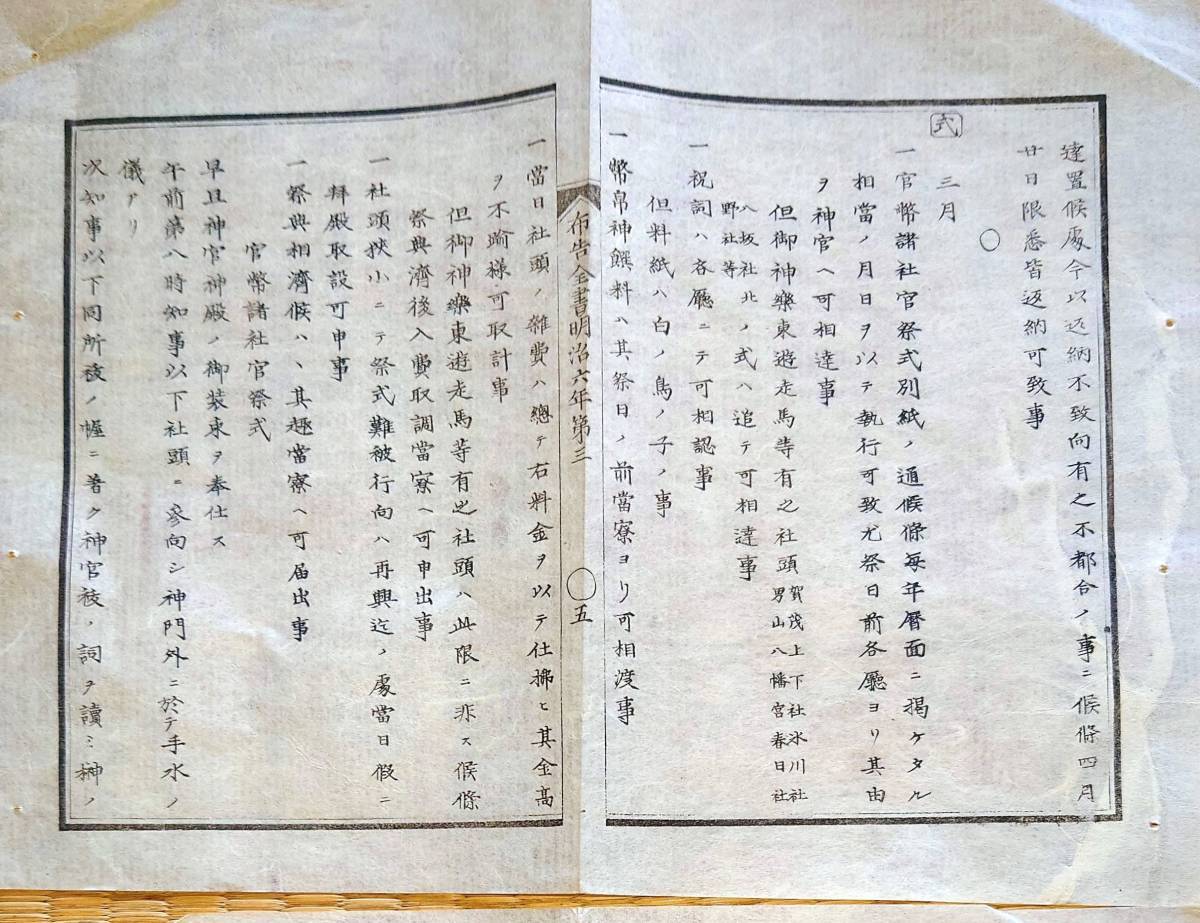 達置候處今以返納不致向有之不都合ノ事ニ候條四月
廿日限悉皆返納可致事
○
三月
式
一官幣諸社官祭式別紙ノ通候條毎年暦面ニ揭ケタル
相當ノ月日ヲ以テ執行可致尤祭日前各廳ヨリ其由
ヲ神官ヘ可相達事
但御神樂東遊走馬等有之社頭賀茂上下社氷川社
男山八幡宮春日社
八坂社北
野社等ノ式ハ追テ可相達事
一祝詞ハ各廳ニテ可相認事
但料紙ハ白ノ鳥ノ子ノ事
一幣帛神饌料ハ其祭日ノ前當寮ヨリ可相渡事
布告全書明治六年第三 ○五
一當日社頭ノ雜費ハ總テ右料金ヲ以テ仕拂ヒ其金高
ヲ不踰樣可取計事
但御神樂東遊走馬等有之社頭ハ此限ニ非ス候條
祭典濟後入費取調當寮ヘ可申出事
一社頭狹小ニテ祭式難被行向ハ再興迄ノ處當日假ニ
拜殿取設可申事
一祭典相濟候ハヽ其趣當寮ヘ可届出事
官幣諸社官祭式
早旦神官神殿ノ御裝束ヲ奉仕ス
午前第八時知事以下社頭ニ參向シ神門外ニ於テ手水ノ
儀アリ
次知事以下同所祓ノ幄ニ著ク神官祓ノ詞ヲ讀ミ榊ノ